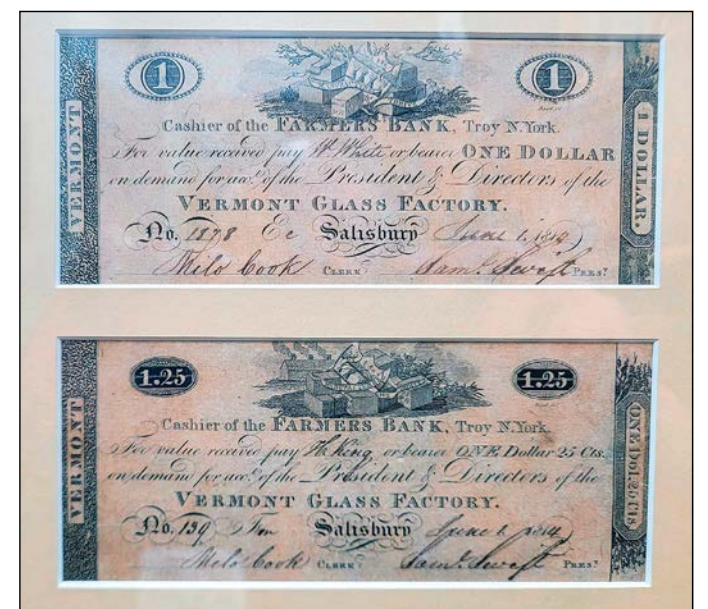 1
1
VERMONT
1 DOLLAR.
Cashier of the FARMERS BANK, Troy N.York.
For value received pay W. White or bearer ONE DOLLAR
on demand for acct. of the President & Directors of the
VERMONT GLASS FACTORY.
No. 1878 Salisbury June 1. 1814
Milo Cook CLERK Saml. Swift PREST
1.25
1.25
VERMONT
ONE Dol. 25 Cts
Cashier of the FARMERS BANK, Troy N.York.
For value received pay H. King or bearer ONE Dollar 25 Cts.
on demand for acct. of the President & Directors of the
VERMONT GLASS FACTORY.
No. 139 Salisbury June 1. 1814
Milo Cook CLERK Saml. Swift PREST